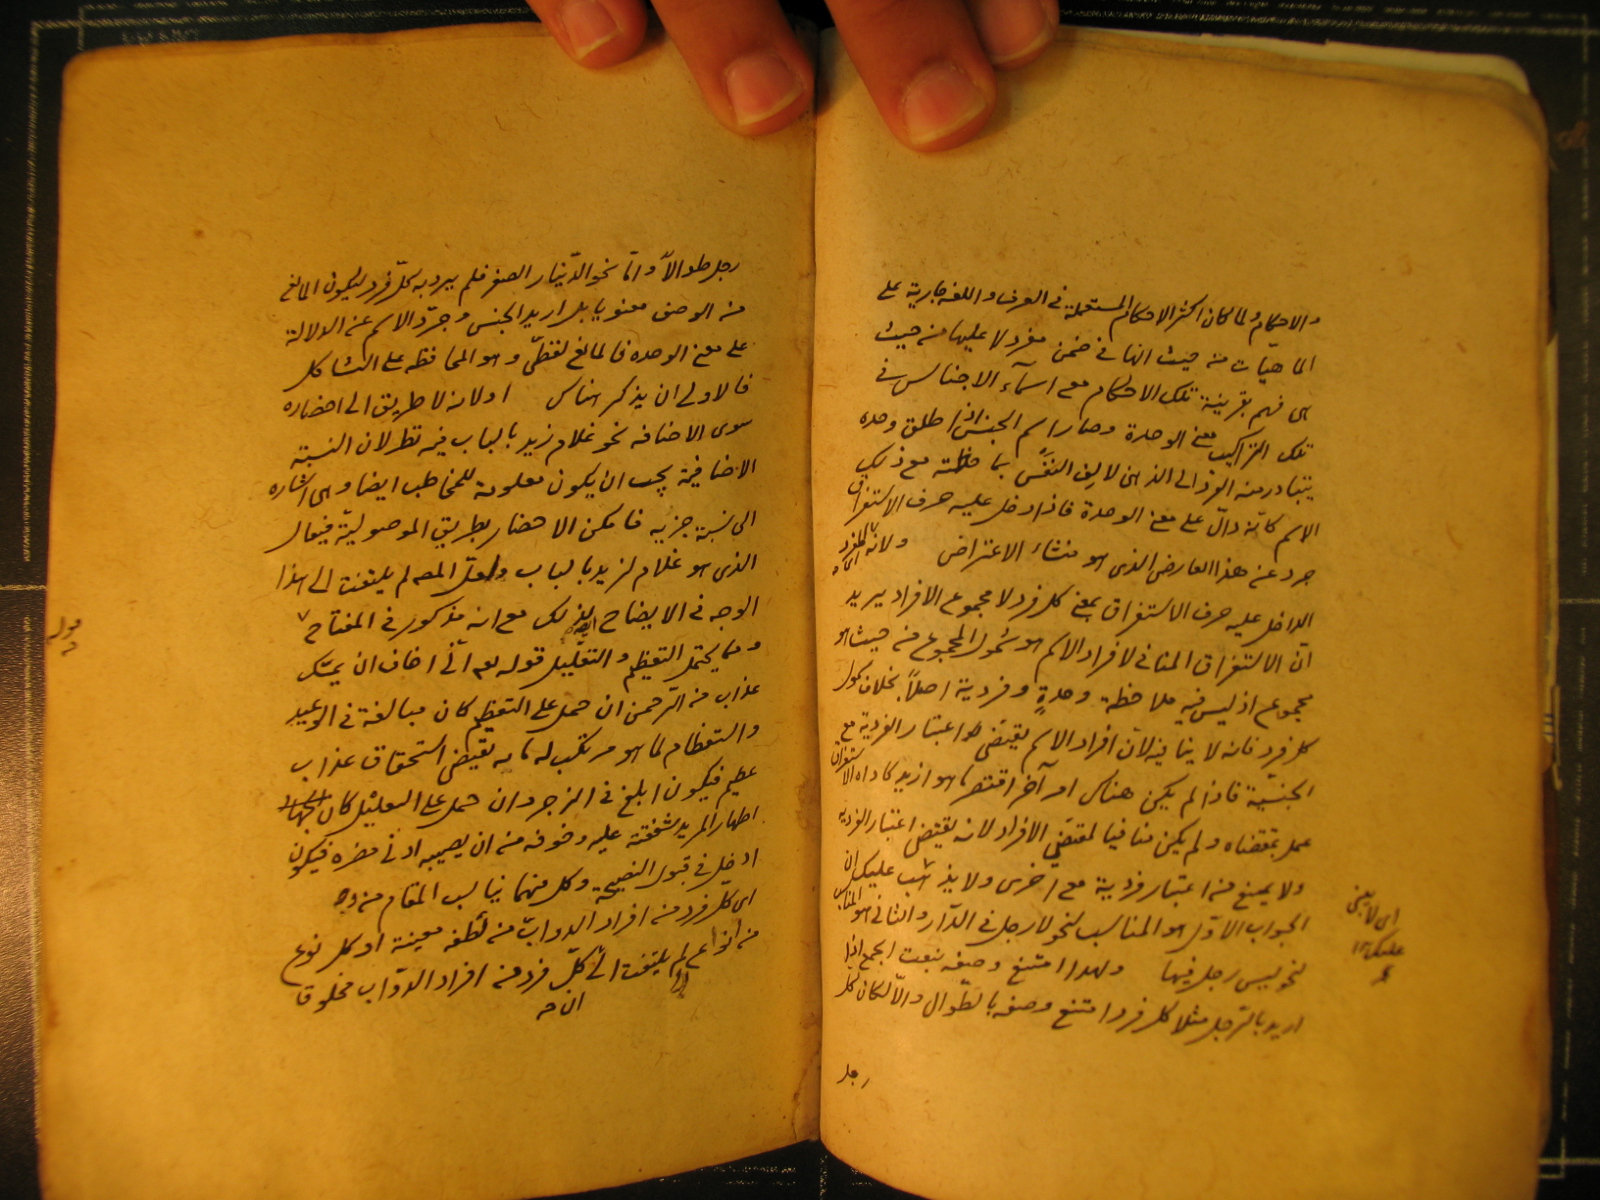 والاحكام ولما كان اكثر الاحكام المستعملة في العرف واللغة جارية على
الماهيات من حيث انها في ضمن فرد لا عليها من حيث
هي فهم بقرينة تلك الاحكام مع اسمآء الاجناس في
تلك التراكيب معنى الوحدة وصار اسم الجنس اذا اطلق وحده
يتبادر منه الفرد الى الذهن لالف النفس بملاحظته مع ذلك
الاسم كانه دالّ على معنى الوحدة فاذا دخل عليه حرف الاستغراق
جرد عن هذا العارض الذى هو منشاء الاعتراض ولانه اى المفرد
الداخل عليه حرف الاستغراق بمعنى كل فرد لا مجموع الافراد يريد
انّ الاستغراق المنافى لافراد الاسم هو شمول المجموع من حيث هو
مجموع اذ ليس فيه ملاحظة وحدةٍ وفردية اصلاً بخلاف شمول
كل فردٍ فانه لا ينافيه لانّ افراد الاسم يقتضى اعتبار الفردية مع
الجنسية فاذا لم يكن هناك امر آخر اقتصر هو ازيد كاداه الاستغراق
عمل بمقتضاه ولم يكن منافيا لمقتضى الافراد لانه يقتضى اعتبار الفردية
ولا يمنع من اعتبار فردية مع اخرى ولا يذهب عليك ان
الجواب الاوّل هو المناسب لنحو لا رجل في الدّار والثانى هو المناسب
لنحو ليس رجل فيها ولهذا امتنع وصفه بنعت الجمع اذا
اريد بالرّجل مثلا كل فرد امتنع وصفه بالطّوال والّا لكان كل
اى لا يخفى
عليك ١٢
رجل
رجل طوالاً وامّا نحو الدّينار الصفر فلم يرد به كلّ فرد ليكون المانع
من الوصف معنويا بل اريد الجنس وجرّد الاسم عن الدلالة
على معنى الوحده فالمانع لفظىّ وهو المحافظه على التشاكل
فالاولى ان يذكر هناك اولانه لا طريق الى احضاره
سوى الاضافه نحو غلام زيد بالباب فيه نظر لان النسبة
الاضافية يجب ان يكون معلومة للمخاطب ايضا وهى اشاره
الى نسبة جزيه فامكن الاحضار بطريق الموصوليّة فيقال
الذى هو غلام لزيد بالباب ولعلّ المصه لم يلتفت الى هذا
الوجه في الايضاح لذلك مع انه مذكور في المفتاح
ومما يحتمل التعظيم والتقليل قوله تعه انّى اخاف ان يمسّك
عذاب من الرّحمن ان حمل على التعظيم كان مبالغة في الوعيد
واستعظام لما هو مرتكب له بانه يقتضى استحقاق عذاب
عظيم فيكون ابلغ في الزجر وان حمل على التعليل كان
اظهارا لمريد شفقته عليه وخوفه من ان يصيبه ادنى مضره فيكون
ادخل في قبول النصيحة وكل منهما يناسب المقام من وجه
اى كلّ فرد من افراد الدوابّ من نطفه معينة او كل نوع
من انواع لم يلتفت الى كلّ فرد من افراد الدوّاب مخلوقا
ان
قوله